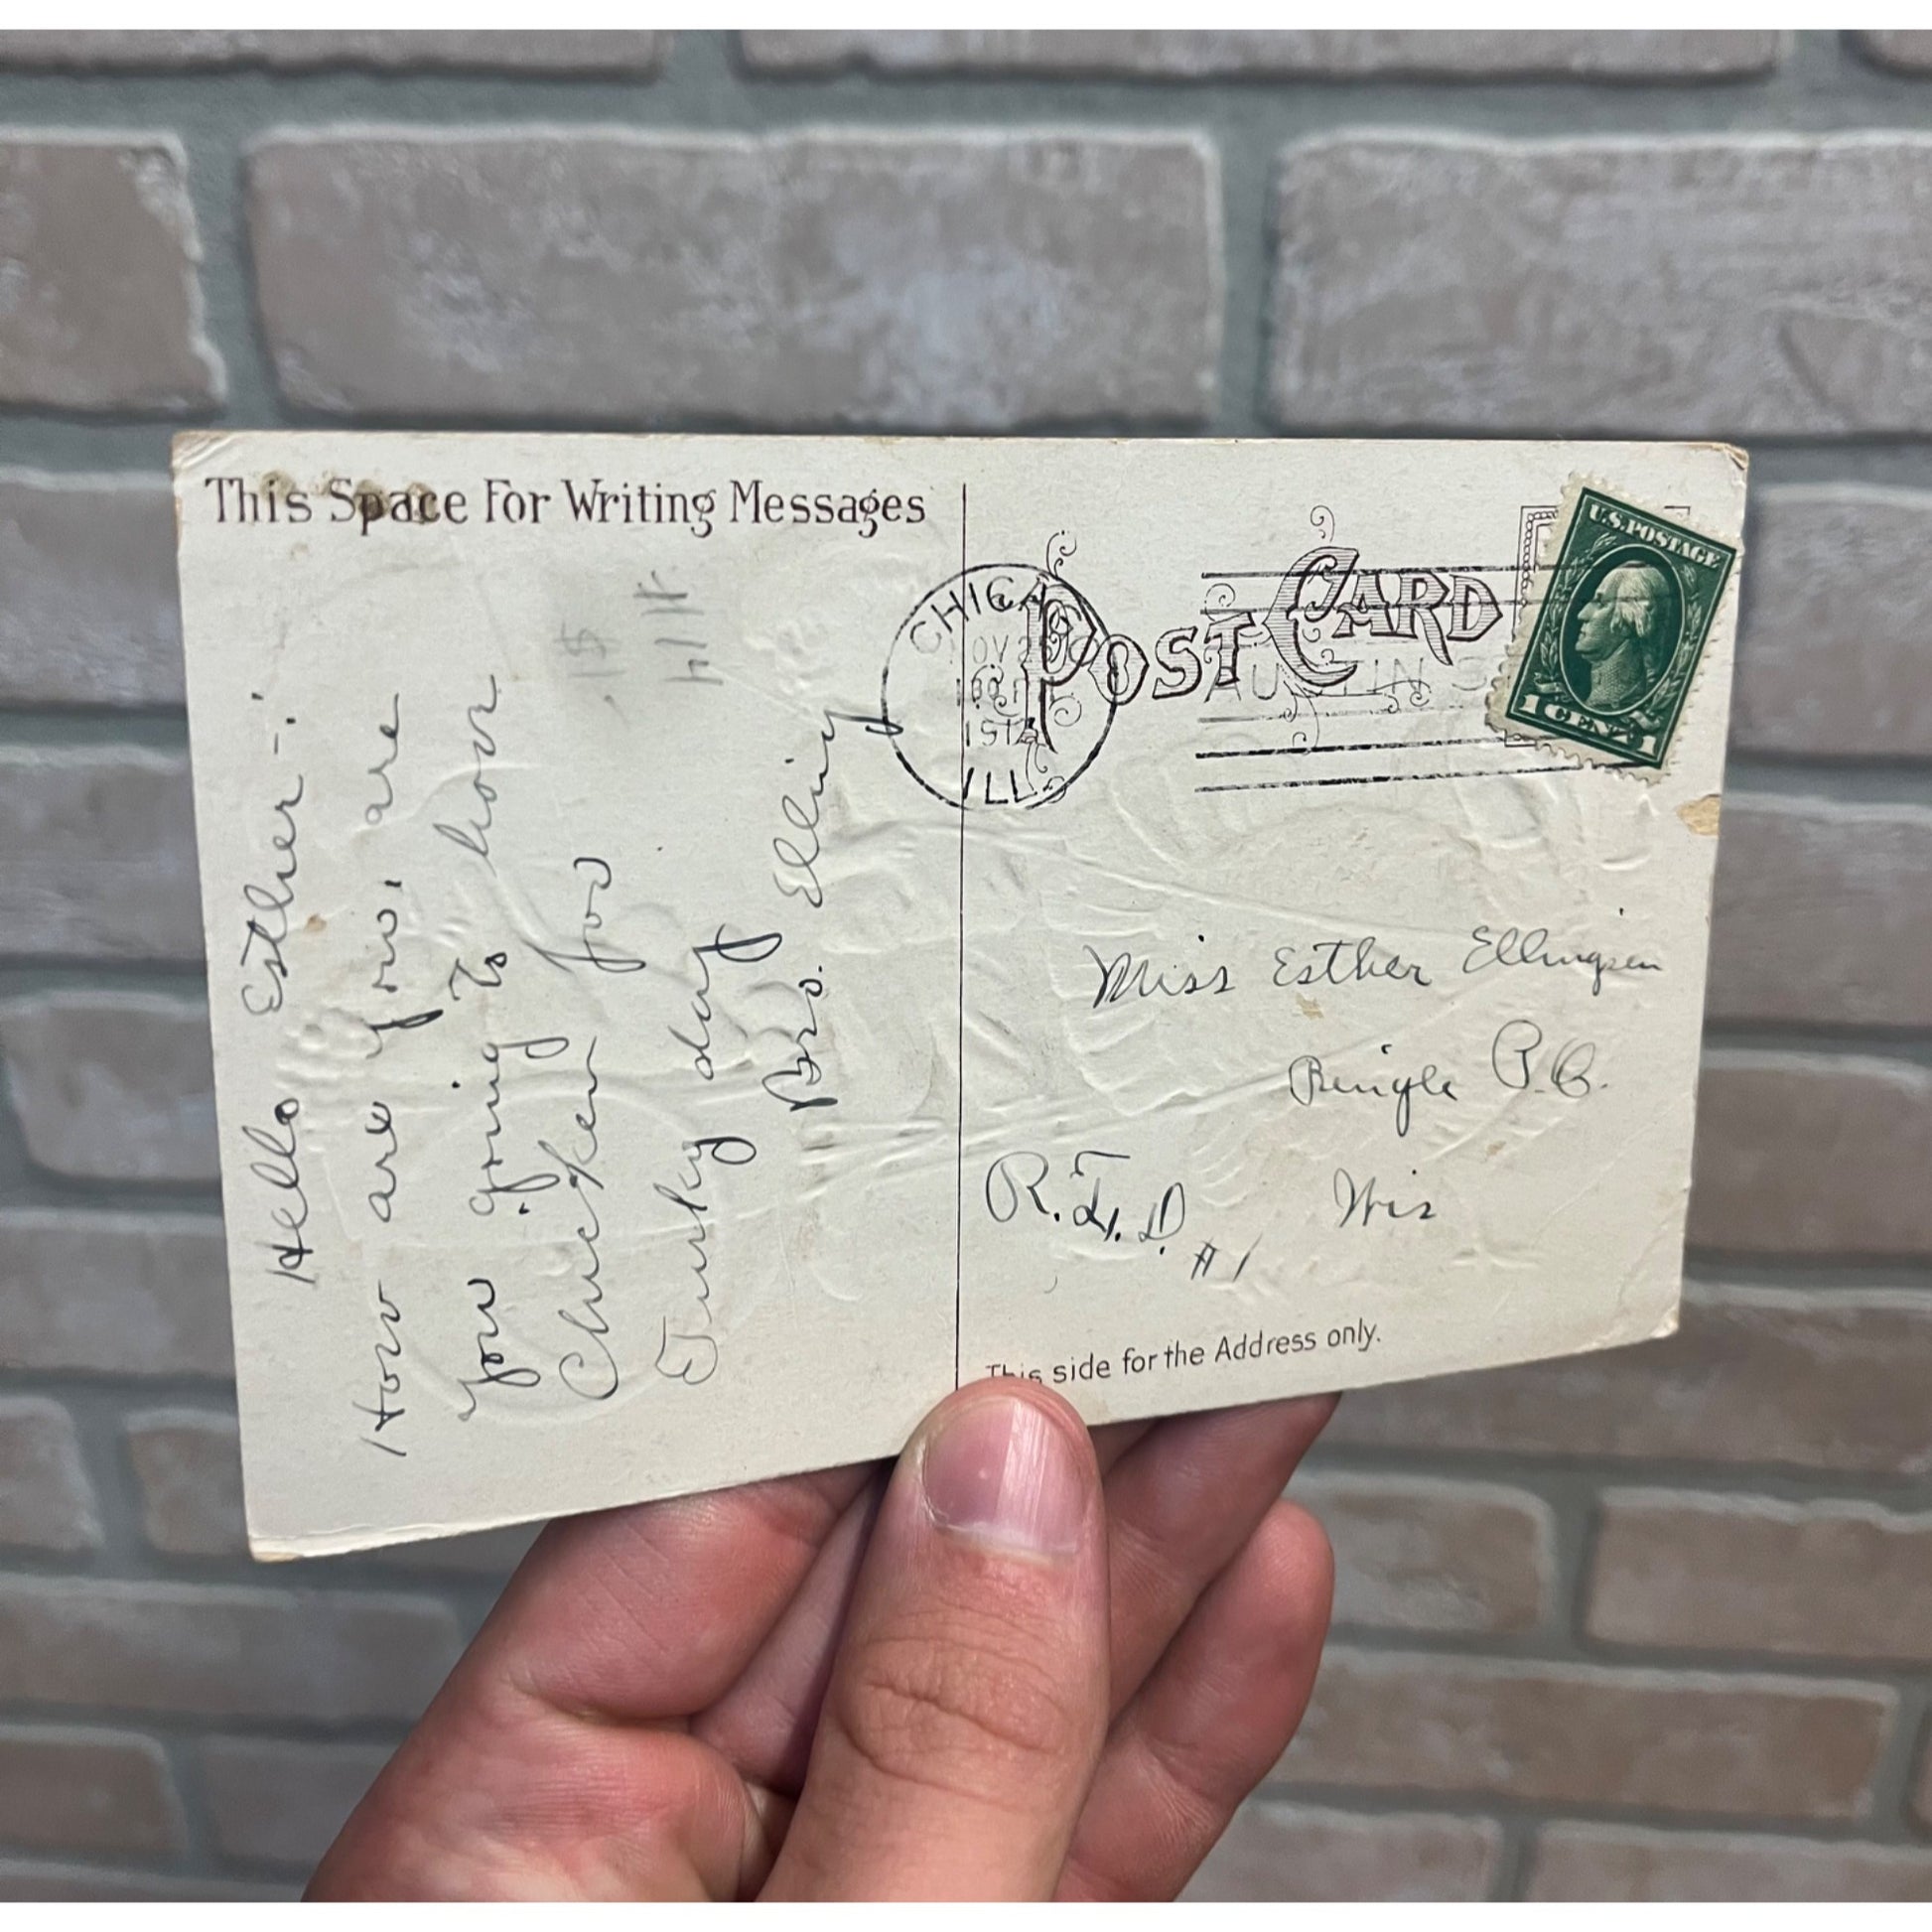 This Space For Writing Messages
Hello Esther-:
How are you, are
you going to have
Chicken for
Turky day
Bro. Elling
POST CARD
CHICAGO
NOV 2
1912
ILL.
AUSTIN S
U.S. POSTAGE
1 CENT 1
Miss Esther Ellingsen
Ringle P.O.
R.F.D. #1 Wis
This side for the Address only.